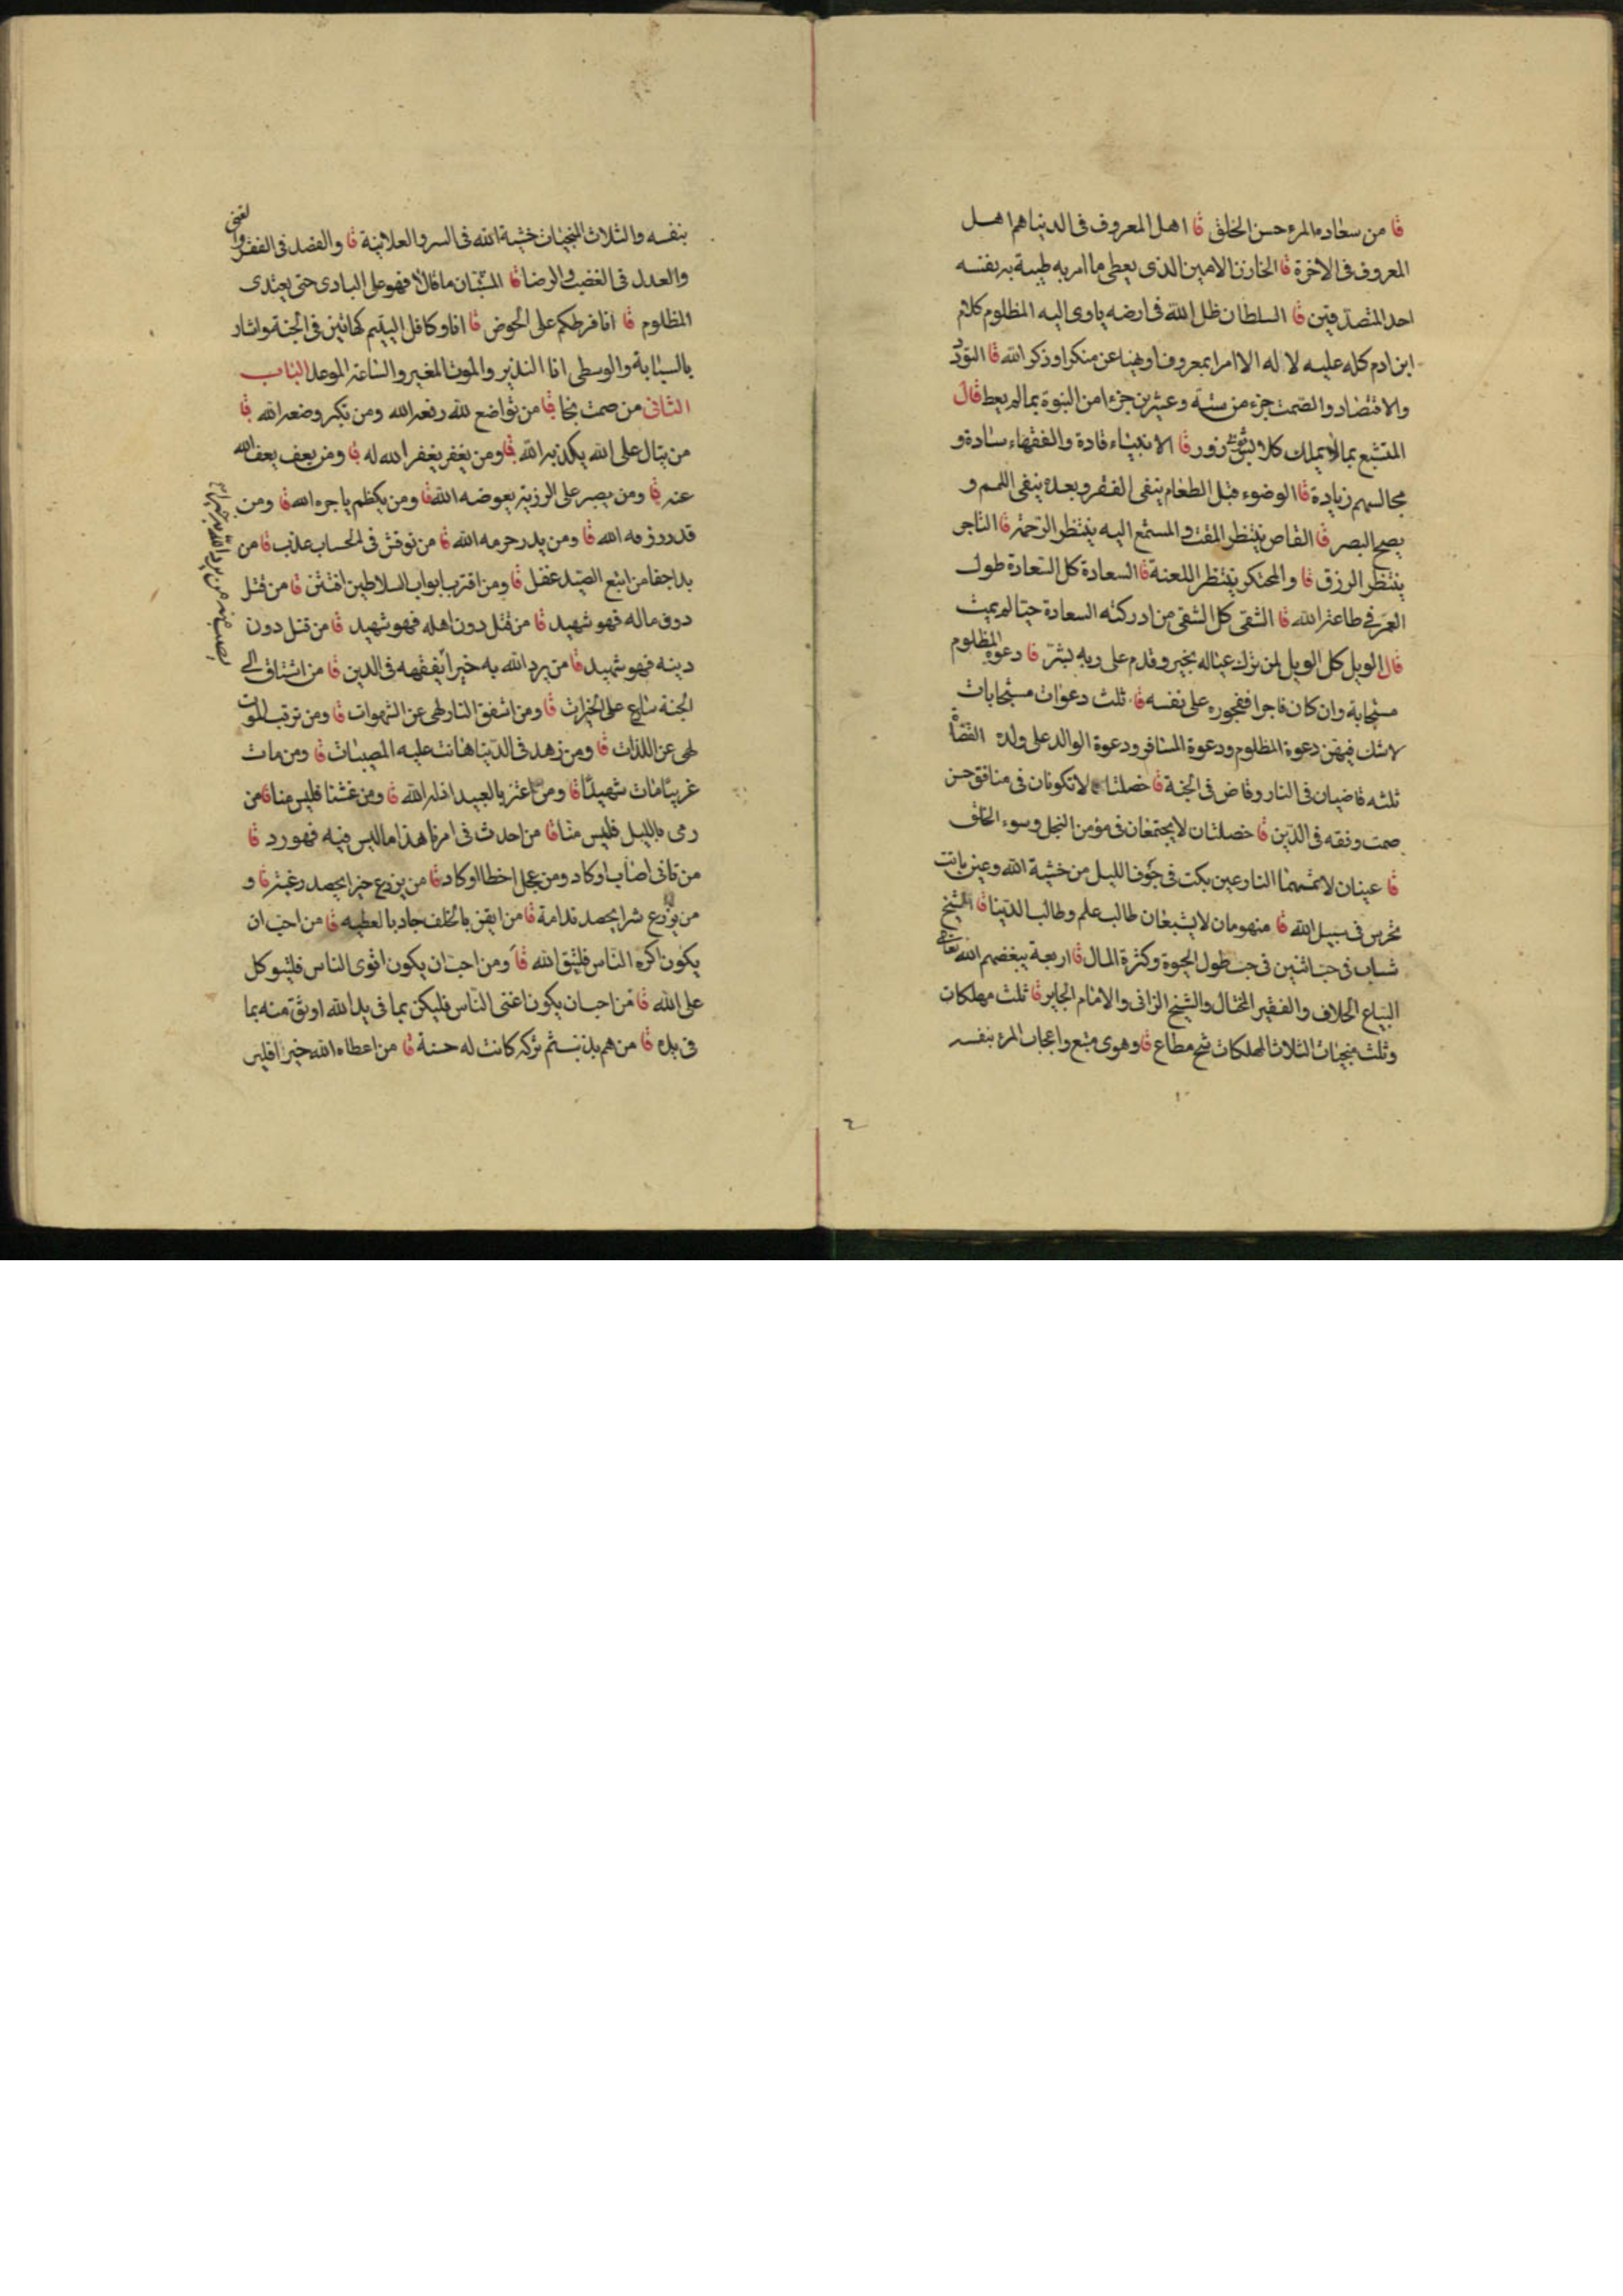 قا من سعادة المرء حسن الخلق قا اهل المعروف فى الدنيا هم اهل
المعروف فى الاخرة قا الخازن الامين الذى يعطى ما امر به طيبة به نفسه
احد المتصدقين قا السلطان ظل الله فى ارضه ياوى اليه المظلوم كلام
ابن ادم كله عليه لا له الا امرا بمعروف او نهيا عن منكر او ذكر الله قا التودد
والاقتصاد والصمت جزء من ستة وعشرين جزءا من النبوة بما لم يعط قال
المتشبع بما لا يملك كلابس ثوبى زور قا الانبياء قادة والفقهاء سادة و
مجالسهم زيادة قا الوضوء قبل الطعام ينفى الفقر وبعده ينفى اللمم و
يصح البصر قا القاص ينتظر المقت و المستمع اليه ينتظر الرحمة قا التاجر
ينتظر الرزق قا والمحتكر ينتظر اللعنة قا السعادة كل السعادة طول
العمر فى طاعة الله قا الشقى كل الشقى من ادركته السعادة حيا لم يمت
قال الويل كل الويل لمن ترك عياله بخير وقدم على ربه بشر قا دعوة المظلوم
مستجابة وان كان فاجرا ففجوره على نفسه قا ثلث دعوات مستجابات
لا شك فيهن دعوة المظلوم ودعوة المسافر ودعوة الوالد على ولده القضاة
ثلثه قاضيان فى النار وقاض فى الجنة قا خصلتا لا تكونان فى منافق حسن
صمت وفقه فى الدين قا خصلتان لا يجتمعان فى مؤمن البخل وسوء الخلق
قا عينان لا تمسهما النار عين بكت فى جوف الليل من خشية الله وعين باتت
تحرس فى سبيل الله قا منهومان لا يشبعان طالب علم وطالب الدنيا قا الشيخ
شباب فى حب اثنين فى حب طول الحيوة وكثرة المال قا اربعة يبغضهم الله تعالى
البياع الحلاف والفقير المختال والشيخ الزانى والامام الجاير قا ثلث مهلكات
وثلث منجيات الثلاث المهلكات شح مطاع قا وهوى متبع واعجاب المرء بنفسه
بنفسه والثلاث المنجيات خشية الله فى السر والعلانية قا والقصد فى الفقر والغنى
والعدل فى الغضب والرضا قا المستبان ما قالا فهو على البادى حتى يعتدى
المظلوم قا انا فرطكم على الحوض قا انا وكافل اليتيم كهاتين فى الجنة واشار
بالسبابة والوسطى انا النذير والموت المغير والساعة الموعد الباب
الثانى من صمت نجا قا من تواضع لله رفعه الله ومن تكبر وضعه الله قا
من يتال على الله يكذبه الله قا ومن يغفر يغفر الله له قا ومن يعف يعف الله
عنه قا ومن يصبر على الرزية يعوضه الله قا ومن يكظم ياجره الله قا ومن
قدر رزقه الله قا ومن بذر حرمه الله قا من نوقش فى الحساب عذب قا من
بدا جفا من اتبع الصيد غفل قا ومن اقترب ابواب السلاطين افتتن قا من قتل
دون ماله فهو شهيد قا من قتل دون اهله فهو شهيد قا من قتل دون
دينه فهو شهيد قا من يرد الله به خيرا يفقهه فى الدين قا من اشتاق الى
الجنة سارع على الخيرات قا ومن اشفق النار لهى عن الشهوات قا ومن ترقب الموت
لهى عن اللذات قا ومن زهد فى الدنيا هانت عليه المصيبات قا ومن مات
غريبا مات شهيدا قا ومن اعتز بالعبيد اذله الله قا ومن غشنا فليس منا قا من
رمى بالليل فليس منا قا من احدث فى امرنا هذا ما ليس فيه فهو رد قا
من تانى اصاب او كاد ومن عجل اخطا او كاد قا من يزرع خيرا يحصد رغبة قا و
من يزرع شرا يحصد ندامة قا من ايقن بالخلف جاد بالعطيه قا من احب ان
يكون اكره الناس فليتق الله قا ومن احب ان يكون اقوى الناس فليتوكل
على الله قا من احب ان يكون اغنى الناس فليكن بما فى يد الله اوثق منه بما
فى يده قا من هم بذنب ثم تركه كانت له حسنة قا من اعطاه الله خيرا فلير
من يرد الله به خيرا يصب منه